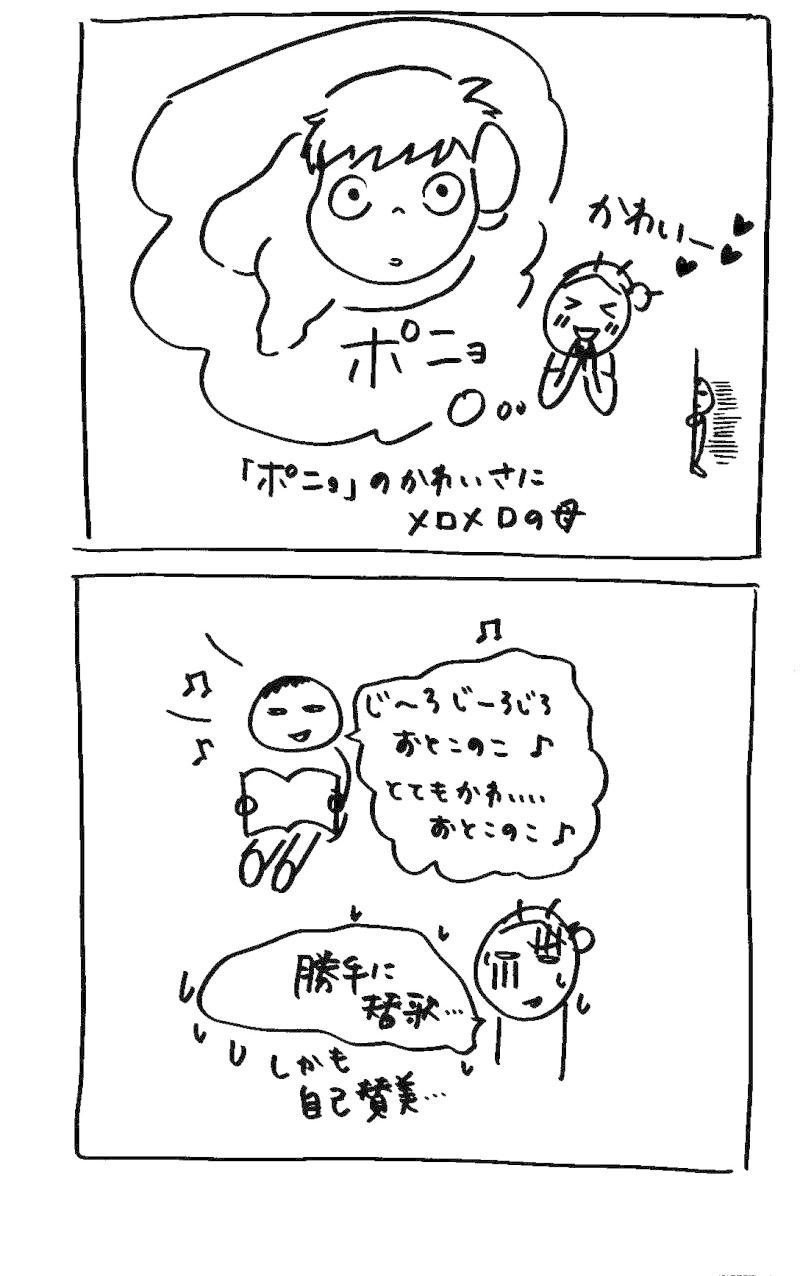 かわいー
ポニョ
「ポニョ」のかわいさに
メロメロの母
じ〜ろじーろじろ
おとこのこ♪
とてもかわいいい
おとこのこ♪
勝手に
替歌…
しかも
自己賛美…